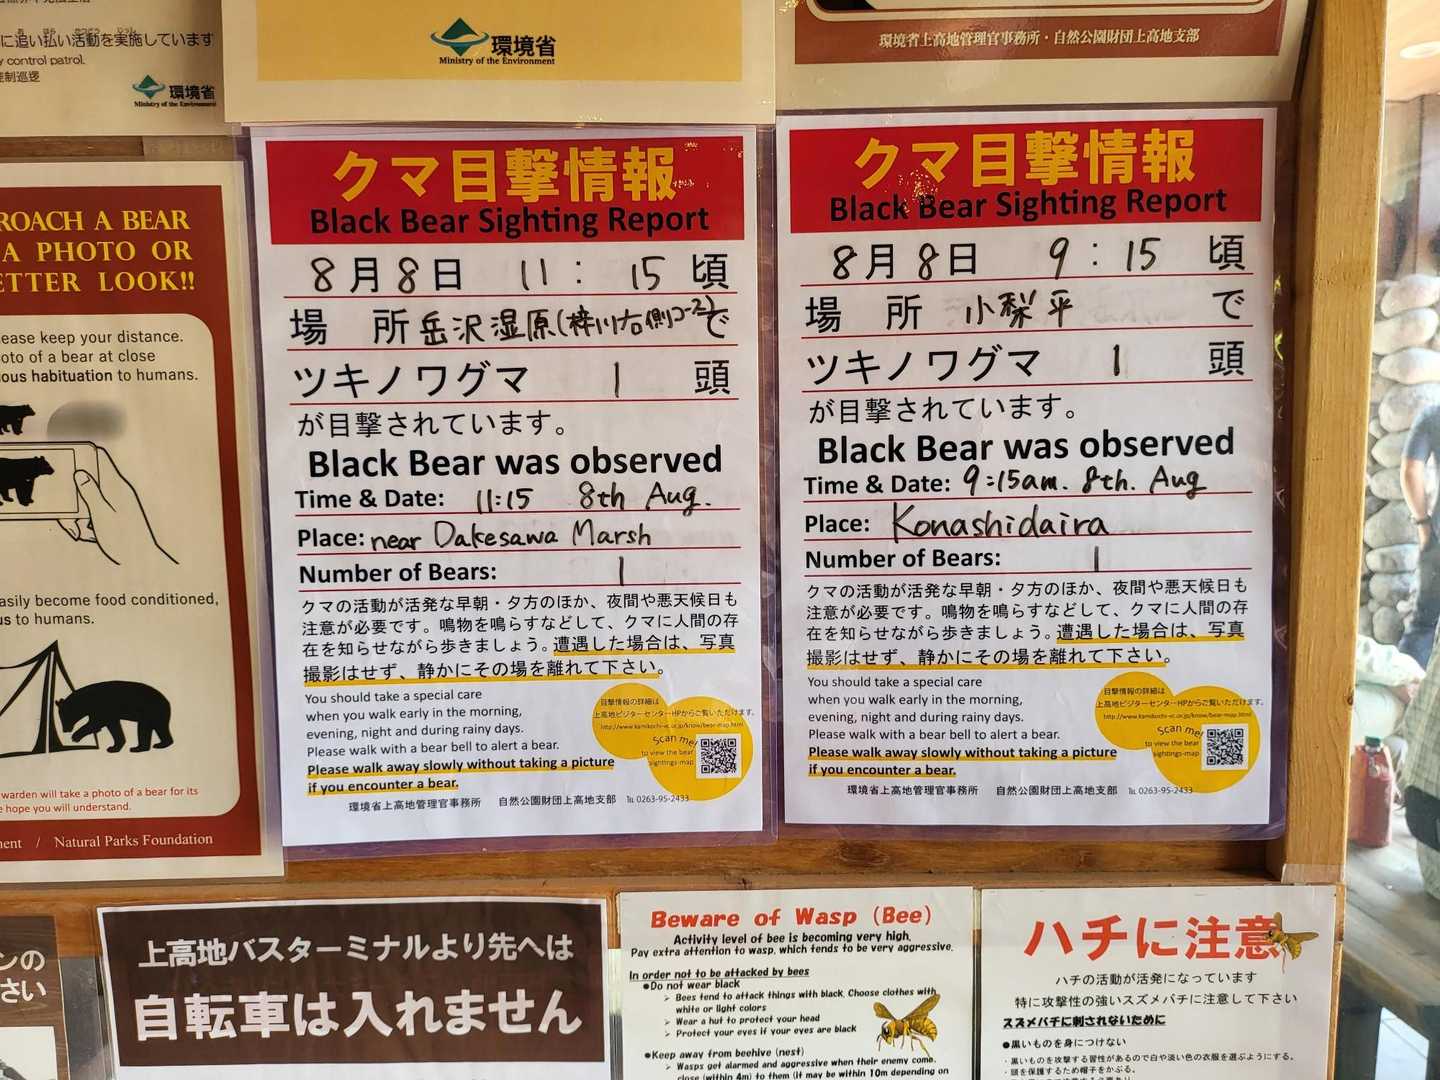 に追い払い活動を実施しています
y control patrol.
控制巡逻
環境省
Ministry of the Environment
環境省
Ministry of the Environment
環境省上高地管理官事務所・自然公園財団上高地支部
ROACH A BEAR
A PHOTO OR
ETTER LOOK!!
ease keep your distance.
oto of a bear at close
ous habituation to humans.
asily become food conditioned,
us to humans.
warden will take a photo of a bear for its
e hope you will understand.
ment / Natural Parks Foundation
クマ目撃情報
Black Bear Sighting Report
8月8日 11:15頃
場所 岳沢湿原(梓川右側コース)で
ツキノワグマ 1 頭
が目撃されています。
Black Bear was observed
Time & Date: 11:15 8th Aug.
Place: near Dakesawa Marsh
Number of Bears: 1
クマの活動が活発な早朝・夕方のほか、夜間や悪天候日も
注意が必要です。鳴物を鳴らすなどして、クマに人間の存
在を知らせながら歩きましょう。遭遇した場合は、写真
撮影はせず、静かにその場を離れて下さい。
You should take a special care
when you walk early in the morning,
evening, night and during rainy days.
Please walk with a bear bell to alert a bear.
Please walk away slowly without taking a picture
if you encounter a bear.
目撃情報の詳細は
上高地ビジターセンターHPからご覧いただけます。
http://www.kamikochi-vc.or.jp/know/bear-map.html
Scan me!
to view the bear
sightings-map
環境省上高地管理官事務所 自然公園財団上高地支部 ℡ 0263-95-2433
クマ目撃情報
Black Bear Sighting Report
8月8日 9:15頃
場所 小梨平 で
ツキノワグマ 1 頭
が目撃されています。
Black Bear was observed
Time & Date: 9:15am. 8th. Aug
Place: Konashidaira
Number of Bears: 1
クマの活動が活発な早朝・夕方のほか、夜間や悪天候日も
注意が必要です。鳴物を鳴らすなどして、クマに人間の存
在を知らせながら歩きましょう。遭遇した場合は、写真
撮影はせず、静かにその場を離れて下さい。
You should take a special care
when you walk early in the morning,
evening, night and during rainy days.
Please walk with a bear bell to alert a bear.
Please walk away slowly without taking a picture
if you encounter a bear.
目撃情報の詳細は
上高地ビジターセンターHPからご覧いただけます。
http://www.kamikochi-vc.or.jp/know/bear-map.html
Scan me!
to view the bear
sightings-map
環境省上高地管理官事務所 自然公園財団上高地支部 ℡ 0263-95-2433
ンの
さい
上高地バスターミナルより先へは
自転車は入れません
Beware of Wasp (Bee)
Activity level of bee is becoming very high.
Pay extra attention to wasp, which tends to be very aggressive.
In order not to be attacked by bees
●Do not wear black
➢ Bees tend to attack things with black. Choose clothes with
white or light colors
➢ Wear a hut to protect your head
➢ Protect your eyes if your eyes are black
●Keep away from beehive (nest)
➢ Wasps get alarmed and aggressive when their enemy come
close (within 4m) to them (it may be within 10m depending on
ハチに注意
ハチの活動が活発になっています
特に攻撃性の強いスズメバチに注意して下さい
スズメバチに刺されないために
●黒いものを身につけない
・黒いものを攻撃する習性があるので白や淡い色の衣服を選ぶようにする。
・頭を保護するため帽子をかぶる。